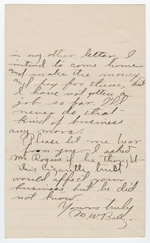 in my other letter. I
intend to come home
and make the money
to pay for these, but
I have not gotten a
job so far. I'll
never do that
kind of business
any more.
Please let me hear
from you. I asked
Mr Rogers if he thought
this would affect your
business but he did
not know.
Yours truly
M. W. Bell